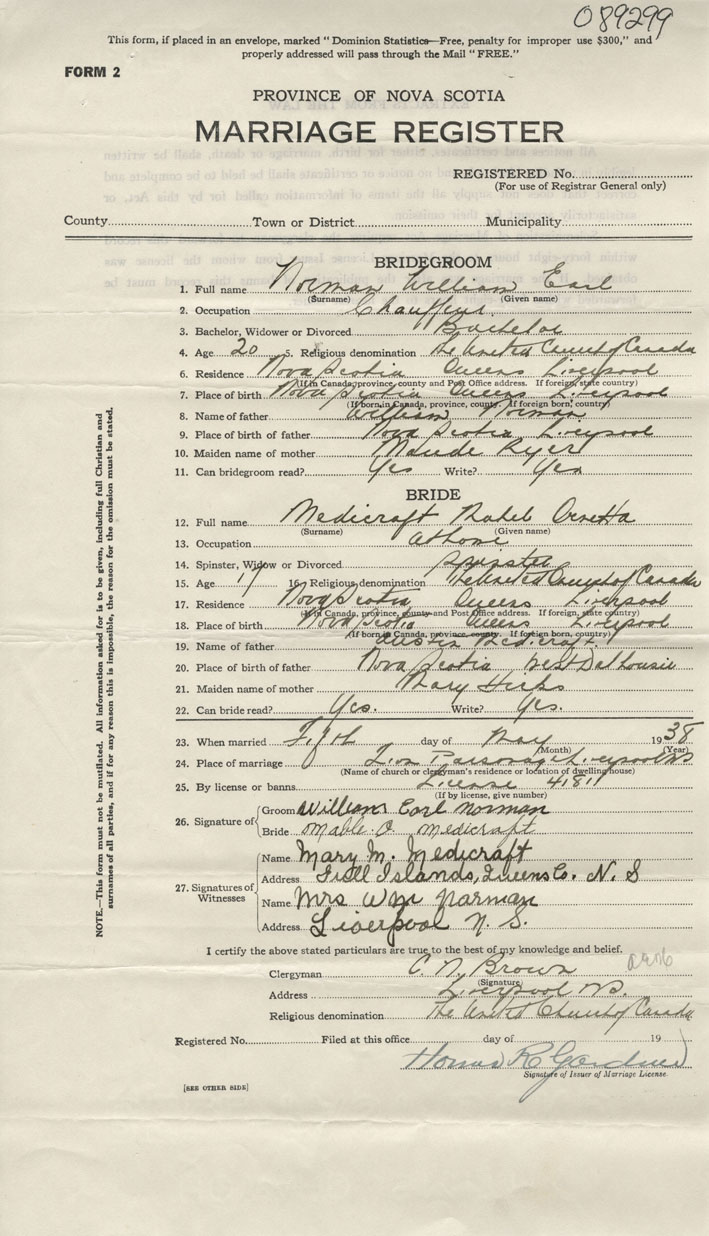 089299
This form, if placed in an envelope, marked "Dominion Statistics—Free, penalty for improper use $300," and
properly addressed will pass through the Mail "FREE."
FORM 2
PROVINCE OF NOVA SCOTIA
MARRIAGE REGISTER
REGISTERED No.
(For use of Registrar General only)
County Town or District Municipality
BRIDEGROOM
1. Full name Norman William Earl
(Surname) (Given name)
2. Occupation Chauffeur
3. Bachelor, Widower or Divorced Bachelor
4. Age 20 5. Religious denomination The United Church of Canada
6. Residence Nova Scotia Queens Liverpool
(If in Canada, province, county and Post Office address. If foreign, state country)
7. Place of birth Nova Scotia Queens Liverpool
(If born in Canada, province, county. If foreign born, country)
8. Name of father William Norman
9. Place of birth of father Nova Scotia Liverpool
10. Maiden name of mother Maude
11. Can bridegroom read? Yes Write? Yes
BRIDE
12. Full name Medicraft Mabel
(Surname) (Given name)
13. Occupation at home
14. Spinster, Widow or Divorced Spinster
15. Age 17 16. Religious denomination The United Church of Canada
17. Residence Nova Scotia Queens Liverpool
(If in Canada, province, county and Post Office address. If foreign, state country)
18. Place of birth Nova Scotia Queens Liverpool
(If born in Canada, province, county. If foreign born, country)
19. Name of father Austin Medicraft
20. Place of birth of father Nova Scotia West Dalhousie
21. Maiden name of mother Mary
22. Can bride read? Yes. Write? Yes.
23. When married day of May 1938
(Month) (Year)
24. Place of marriage Parsonage Liverpool NS
(Name of church or clergyman's residence or location of dwelling house)
25. By license or banns License 41811
(If by license, give number)
26. Signature of
Groom William Earl Norman
Bride Mable O Medicraft
27. Signatures of Witnesses
Name Mary M. Medicraft
Address Islands, Queens Co. N. S
Name Mrs Wm Norman
Address Liverpool N. S.
I certify the above stated particulars are true to the best of my knowledge and belief.
Clergyman C. N. Brown
(Signature)
Address Liverpool N.S.
Religious denomination The United Church of Canada
Registered No. Filed at this office day of 19
Thomas R Gardner
Signature of Issuer of Marriage License.
[SEE OTHER SIDE]
NOTE.—This form must not be mutilated. All information asked for is to be given, including full Christian and
surnames of all parties, and if for any reason this is impossible, the reason for the omission must be stated.